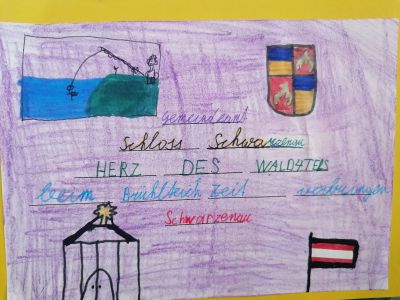 Gemeindeamt
Schloss Schwarzenau
HERZ DES WALD4TELS
beim Brühlteich Zeit verbringen
Schwarzenau